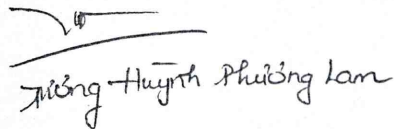 Trương Huỳnh Phương Lam